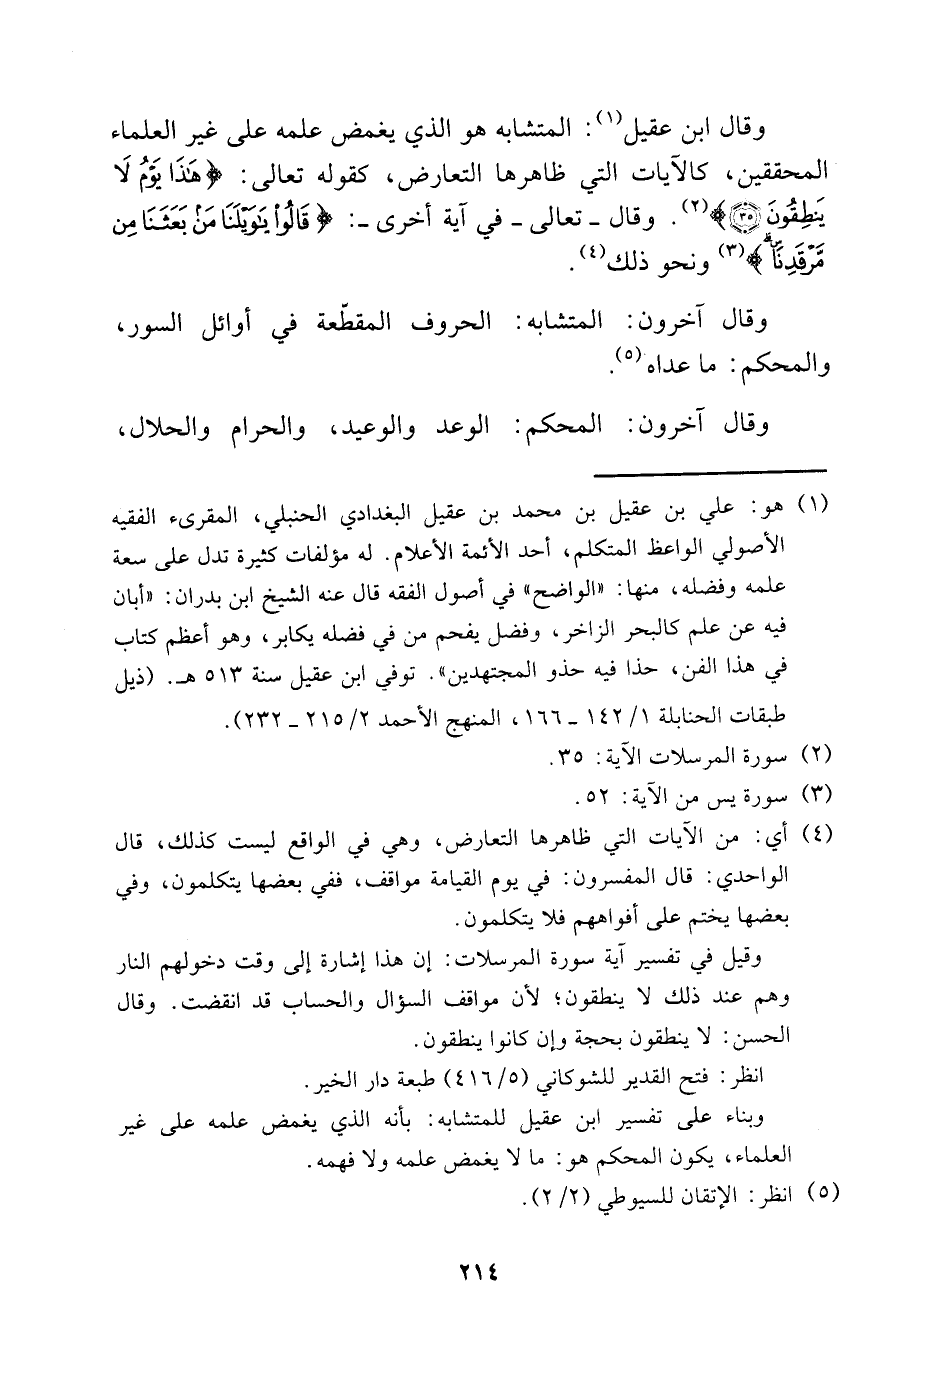 وقال ابن عقيل(١): المتشابه هو الذي يغمض علمه على غير العلماء
المحققين، كالآيات التي ظاهرها التعارض، كقوله تعالى: ﴿هَٰذَا يَوْمُ لَا
يَنطِقُونَ ٣٥﴾(٢). وقال ـ تعالى ـ في آية أخرى ـ: ﴿قَالُوا۟ يَٰوَيْلَنَا مَنۢ بَعَثَنَا مِن
مَّرْقَدِنَا ۜ﴾(٣) ونحو ذلك(٤).
وقال آخرون: المتشابه: الحروف المقطّعة في أوائل السور،
والمحكم: ما عداه(٥).
وقال آخرون: المحكم: الوعد والوعيد، والحرام والحلال،
(١) هو: علي بن عقيل بن محمد بن عقيل البغدادي الحنبلي، المقرىء الفقيه
الأصولي الواعظ المتكلم، أحد الأئمة الأعلام. له مؤلفات كثيرة تدل على سعة
علمه وفضله، منها: «الواضح» في أصول الفقه قال عنه الشيخ ابن بدران: «أبان
فيه عن علم كالبحر الزاخر، وفضل يفحم من في فضله يكابر، وهو أعظم كتاب
في هذا الفن، حذا فيه حذو المجتهدين». توفي ابن عقيل سنة ٥١٣ هـ. (ذيل
طبقات الحنابلة ١/ ١٤٢ ـ ١٦٦، المنهج الأحمد ٢/ ٢١٥ ـ ٢٣٢).
(٢) سورة المرسلات الآية: ٣٥.
(٣) سورة يس من الآية: ٥٢.
(٤) أي: من الآيات التي ظاهرها التعارض، وهي في الواقع ليست كذلك، قال
الواحدي: قال المفسرون: في يوم القيامة مواقف، ففي بعضها يتكلمون، وفي
بعضها يختم على أفواههم فلا يتكلمون.
وقيل في تفسير آية سورة المرسلات: إن هذا إشارة إلى وقت دخولهم النار
وهم عند ذلك لا ينطقون؛ لأن مواقف السؤال والحساب قد انقضت. وقال
الحسن: لا ينطقون بحجة وإن كانوا ينطقون.
انظر: فتح القدير للشوكاني (٥/ ٤١٦) طبعة دار الخير.
وبناء على تفسير ابن عقيل للمتشابه: بأنه الذي يغمض علمه على غير
العلماء، يكون المحكم هو: ما لا يغمض علمه ولا فهمه.
(٥) انظر: الإتقان للسيوطي (٢/ ٢).
٢١٤